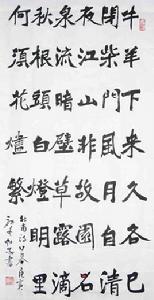 牛羊下来久各已
閉柴門風月自清
夜江山非故園石
泉流暗壁草露滴
秋根頭白燈明里
何須花燼繁
杜甫詩日暮庚寅
書